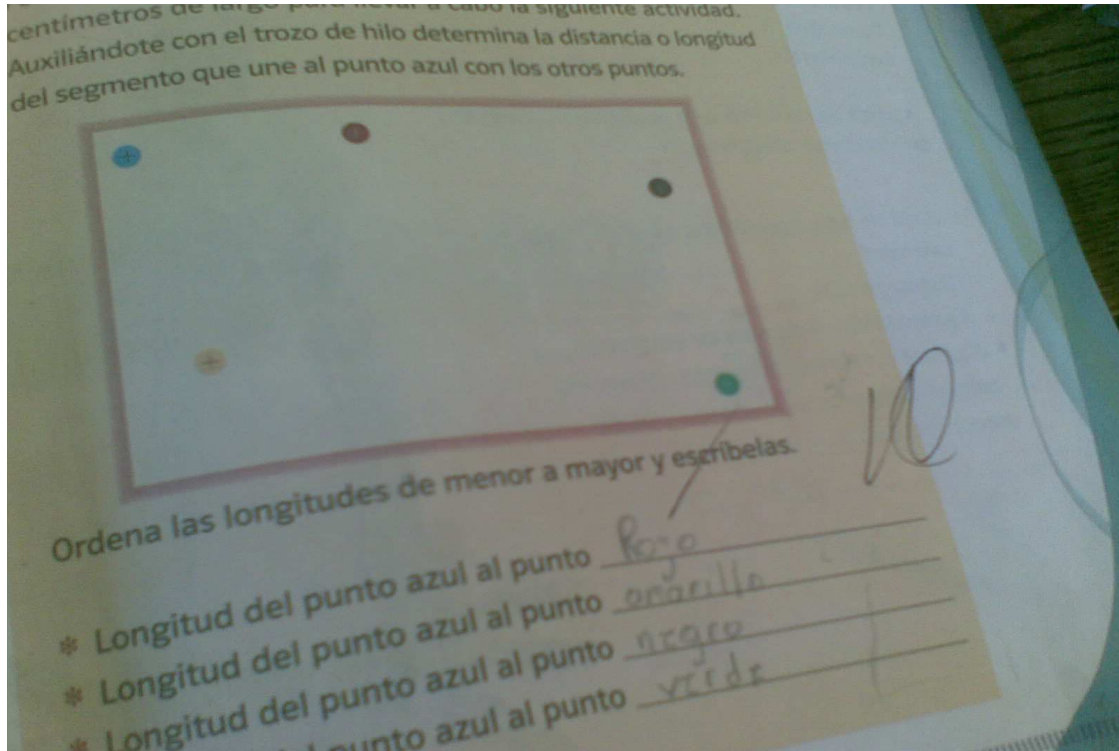 centímetros de largo para llevar a cabo la siguiente actividad.
Auxiliándote con el trozo de hilo determina la distancia o longitud
del segmento que une al punto azul con los otros puntos.
10
Ordena las longitudes de menor a mayor y escríbelas.
* Longitud del punto azul al punto Rojo
* Longitud del punto azul al punto amarillo
* Longitud del punto azul al punto negro
punto azul al punto verde